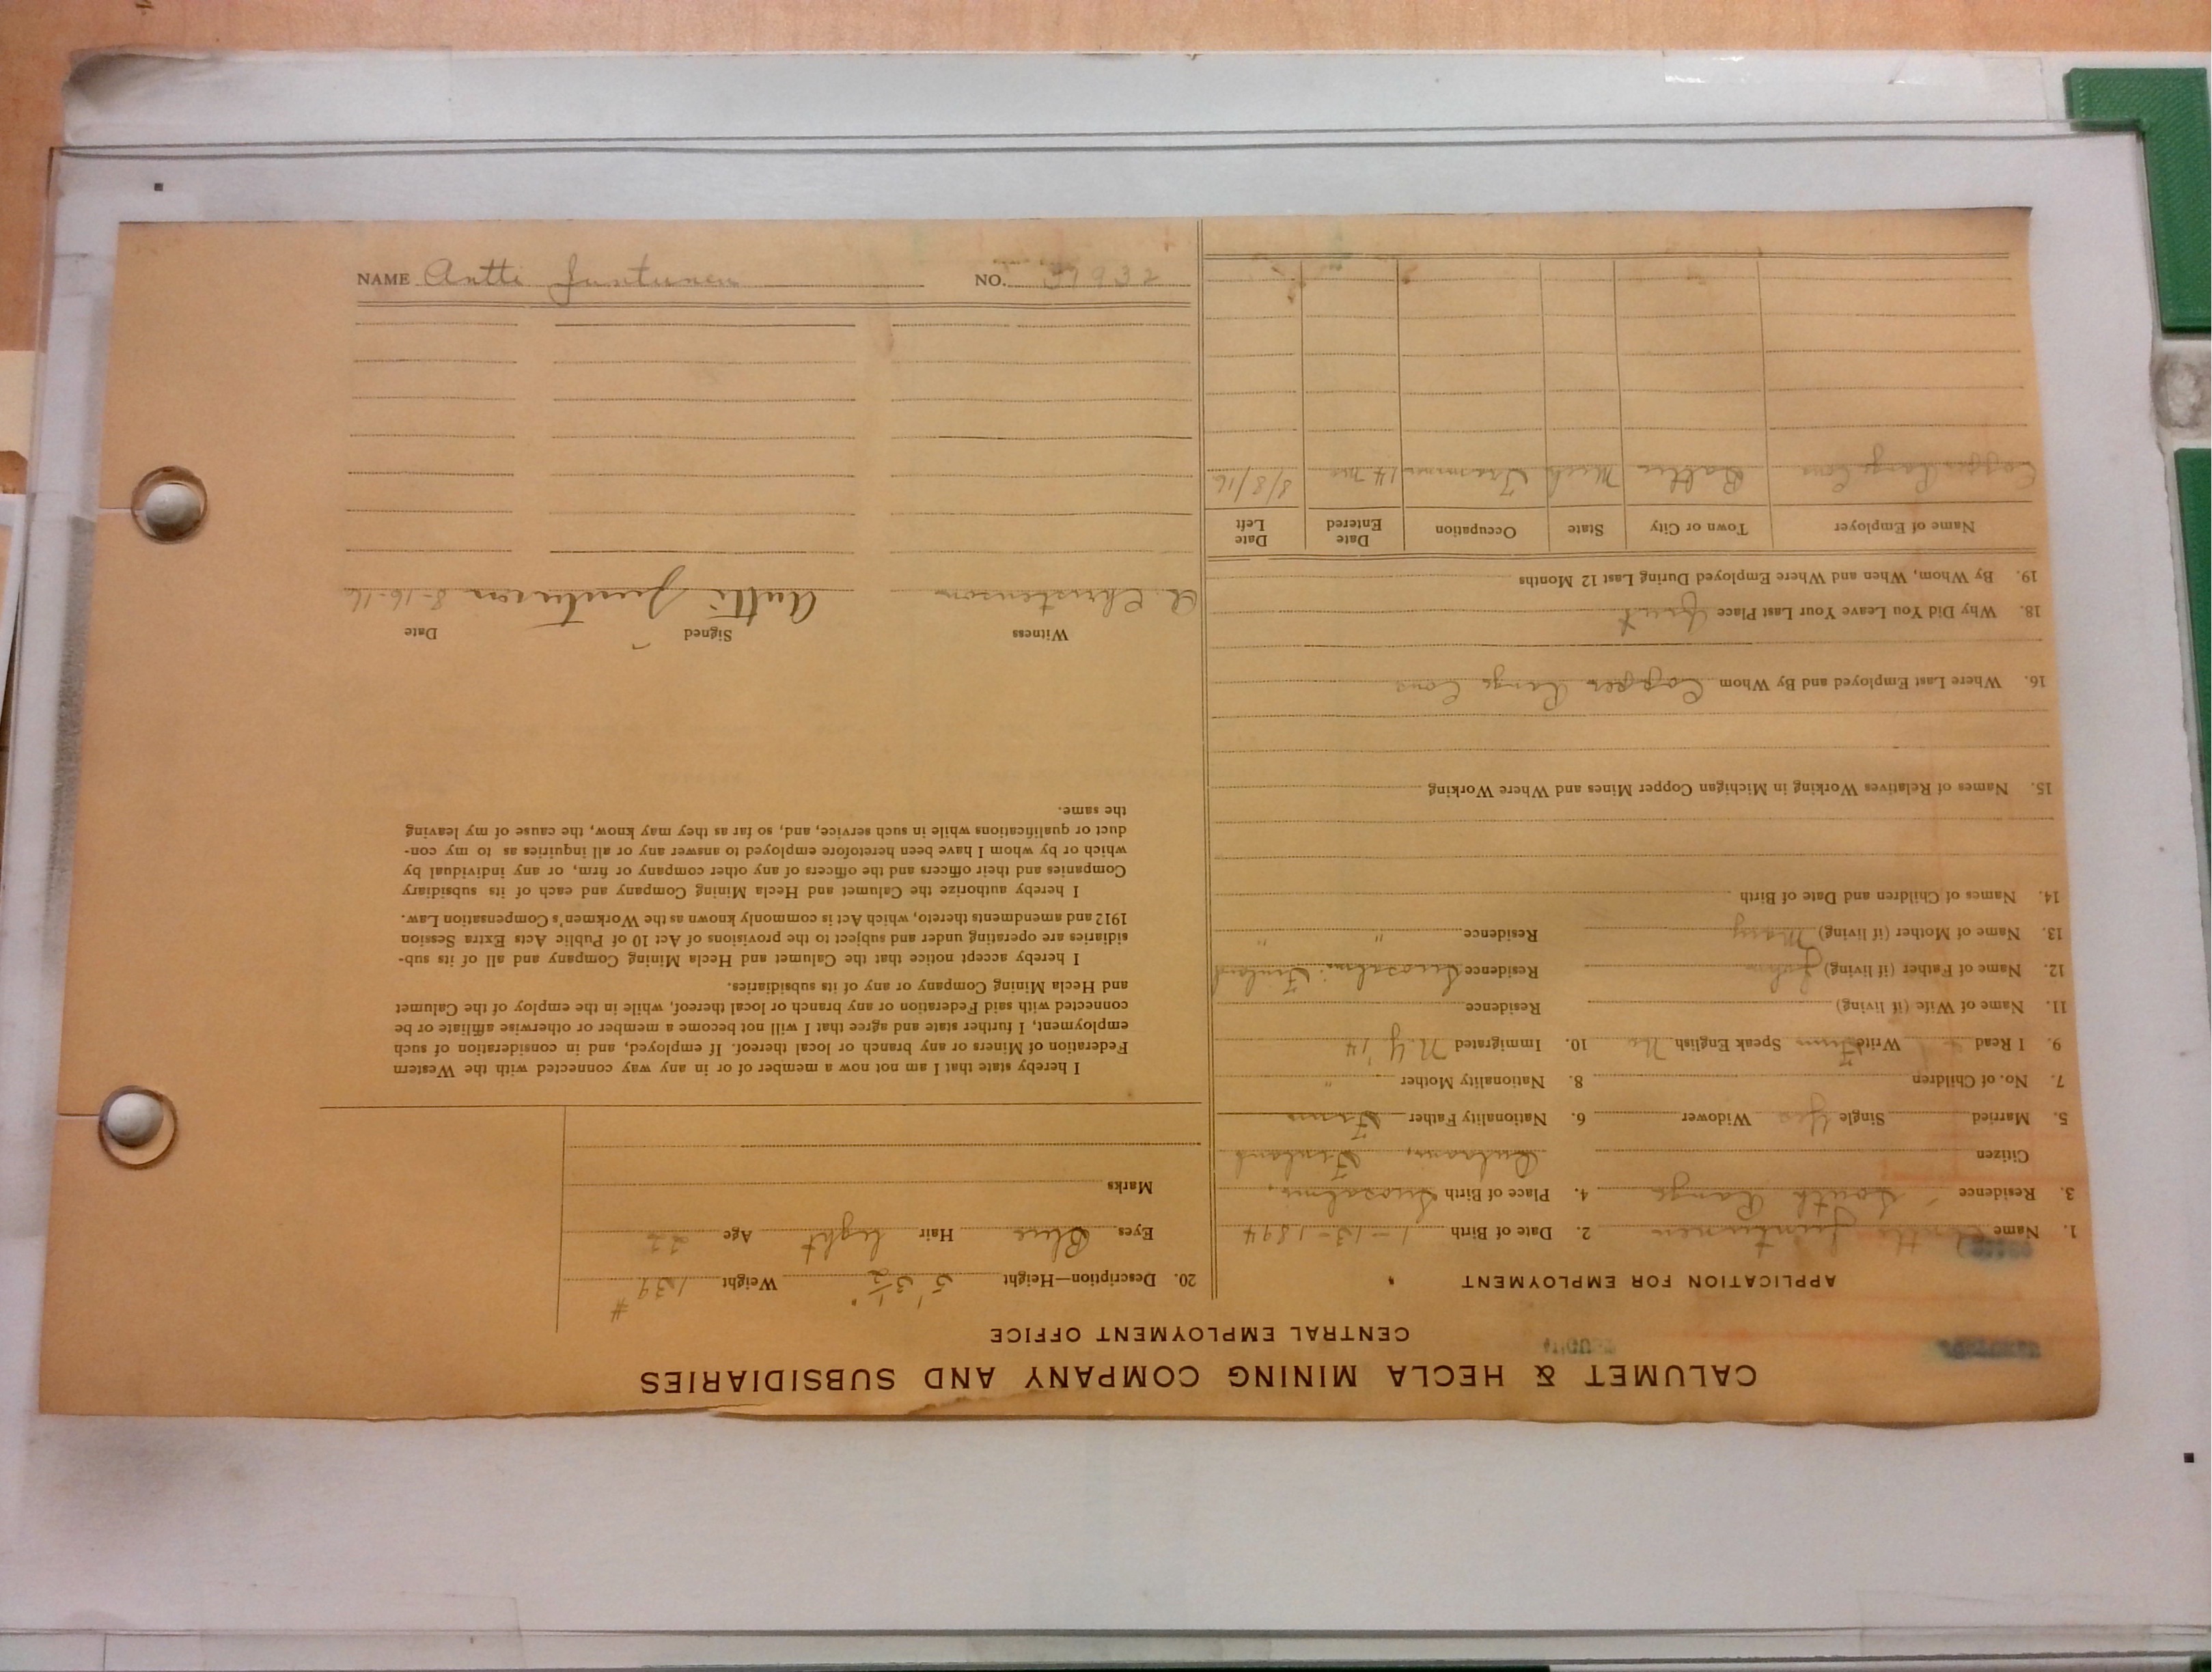 CALUMET & HECLA MINING COMPANY AND SUBSIDIARIES
CENTRAL EMPLOYMENT OFFICE
APPLICATION FOR EMPLOYMENT
1. Name Antti Juntunen 2. Date of Birth 1-13-1894
3. Residence South Range 4. Place of Birth Suosalmi,
Citizen Finland
5. Married Single Yes Widower 6. Nationality Father Finn
7. No. of Children 8. Nationality Mother "
9. I Read Write Finn Speak English No 10. Immigrated N.Y '14
11. Name of Wife (if living) Residence
12. Name of Father (if living) John Residence Suosalmi Finland
13. Name of Mother (if living) Mary Residence " "
14. Names of Children and Date of Birth
15. Names of Relatives Working in Michigan Copper Mines and Where Working
16. Where Last Employed and By Whom Copper Range Cons
18. Why Did You Leave Your Last Place Quit
19. By Whom, When and Where Employed During Last 12 Months
Name of Employer Town or City State Occupation Date Entered Date Left
Copper Range Cons Baltic Mich Trammer 14 mo 8/8/16
20. Description—Height 5' 3½" Weight 139 #
Eyes Blue Hair light Age 22
Marks
I hereby state that I am not now a member of or in any way connected with the Western
Federation of Miners or any branch or local thereof. If employed, and in consideration of such
employment, I further state and agree that I will not become a member or otherwise affiliate or be
connected with said Federation or any branch or local thereof, while in the employ of the Calumet
and Hecla Mining Company or any of its subsidiaries.
I hereby accept notice that the Calumet and Hecla Mining Company and all of its sub-
sidiaries are operating under and subject to the provisions of Act 10 of Public Acts Extra Session
1912 and amendments thereto, which Act is commonly known as the Workmen's Compensation Law.
I hereby authorize the Calumet and Hecla Mining Company and each of its subsidiary
Companies and their officers and the officers of any other company or firm, or any individual by
which or by whom I have been heretofore employed to answer any or all inquiries as to my con-
duct or qualifications while in such service, and, so far as they may know, the cause of my leaving
the same.
Witness Signed Date
A. Christenson Antti Juntunen 8-16-16
NAME Antti Juntunen NO. 37932